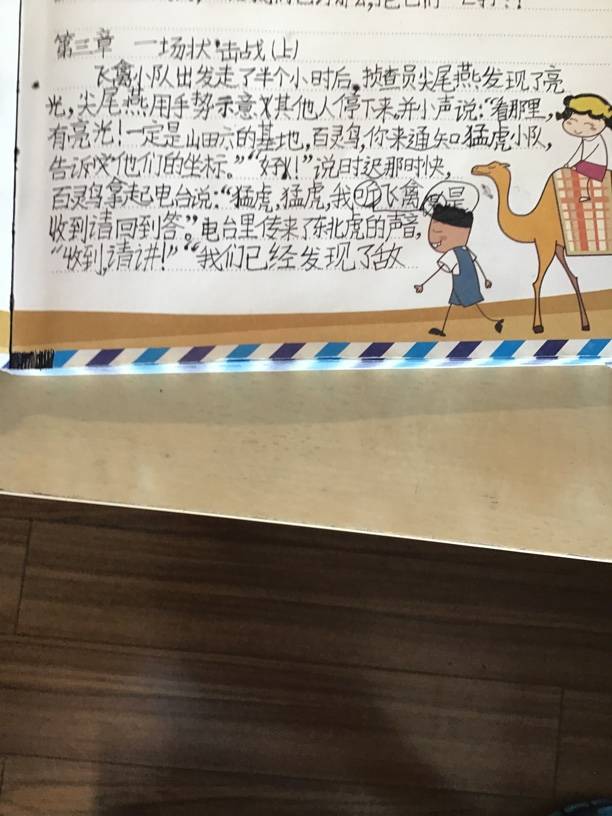 第三章 一场伏击战(上)
飞禽小队出发走了半个小时后,侦查员尖尾燕发现了亮
光,尖尾燕用手势示意其他人停下来。并小声说:“看那里,
有亮光!一定是山田六的基地,百灵鸟,你来通知猛虎小队,
告诉他们的坐标。”“好!”说时迟那时快,
百灵鸟拿起电台说:“猛虎,猛虎,我飞禽是
收到请回到答。”电台里传来了东北虎的声音,
“收到,请讲!”“我们已经发现了敌